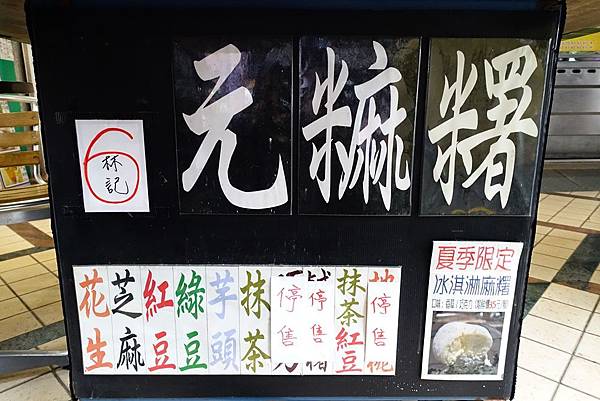 6 元麻糬
林記
花生
芝麻
紅豆
綠豆
芋頭
抹茶
停售
停售
抹茶紅豆
停售
夏季限定
冰淇淋麻糬